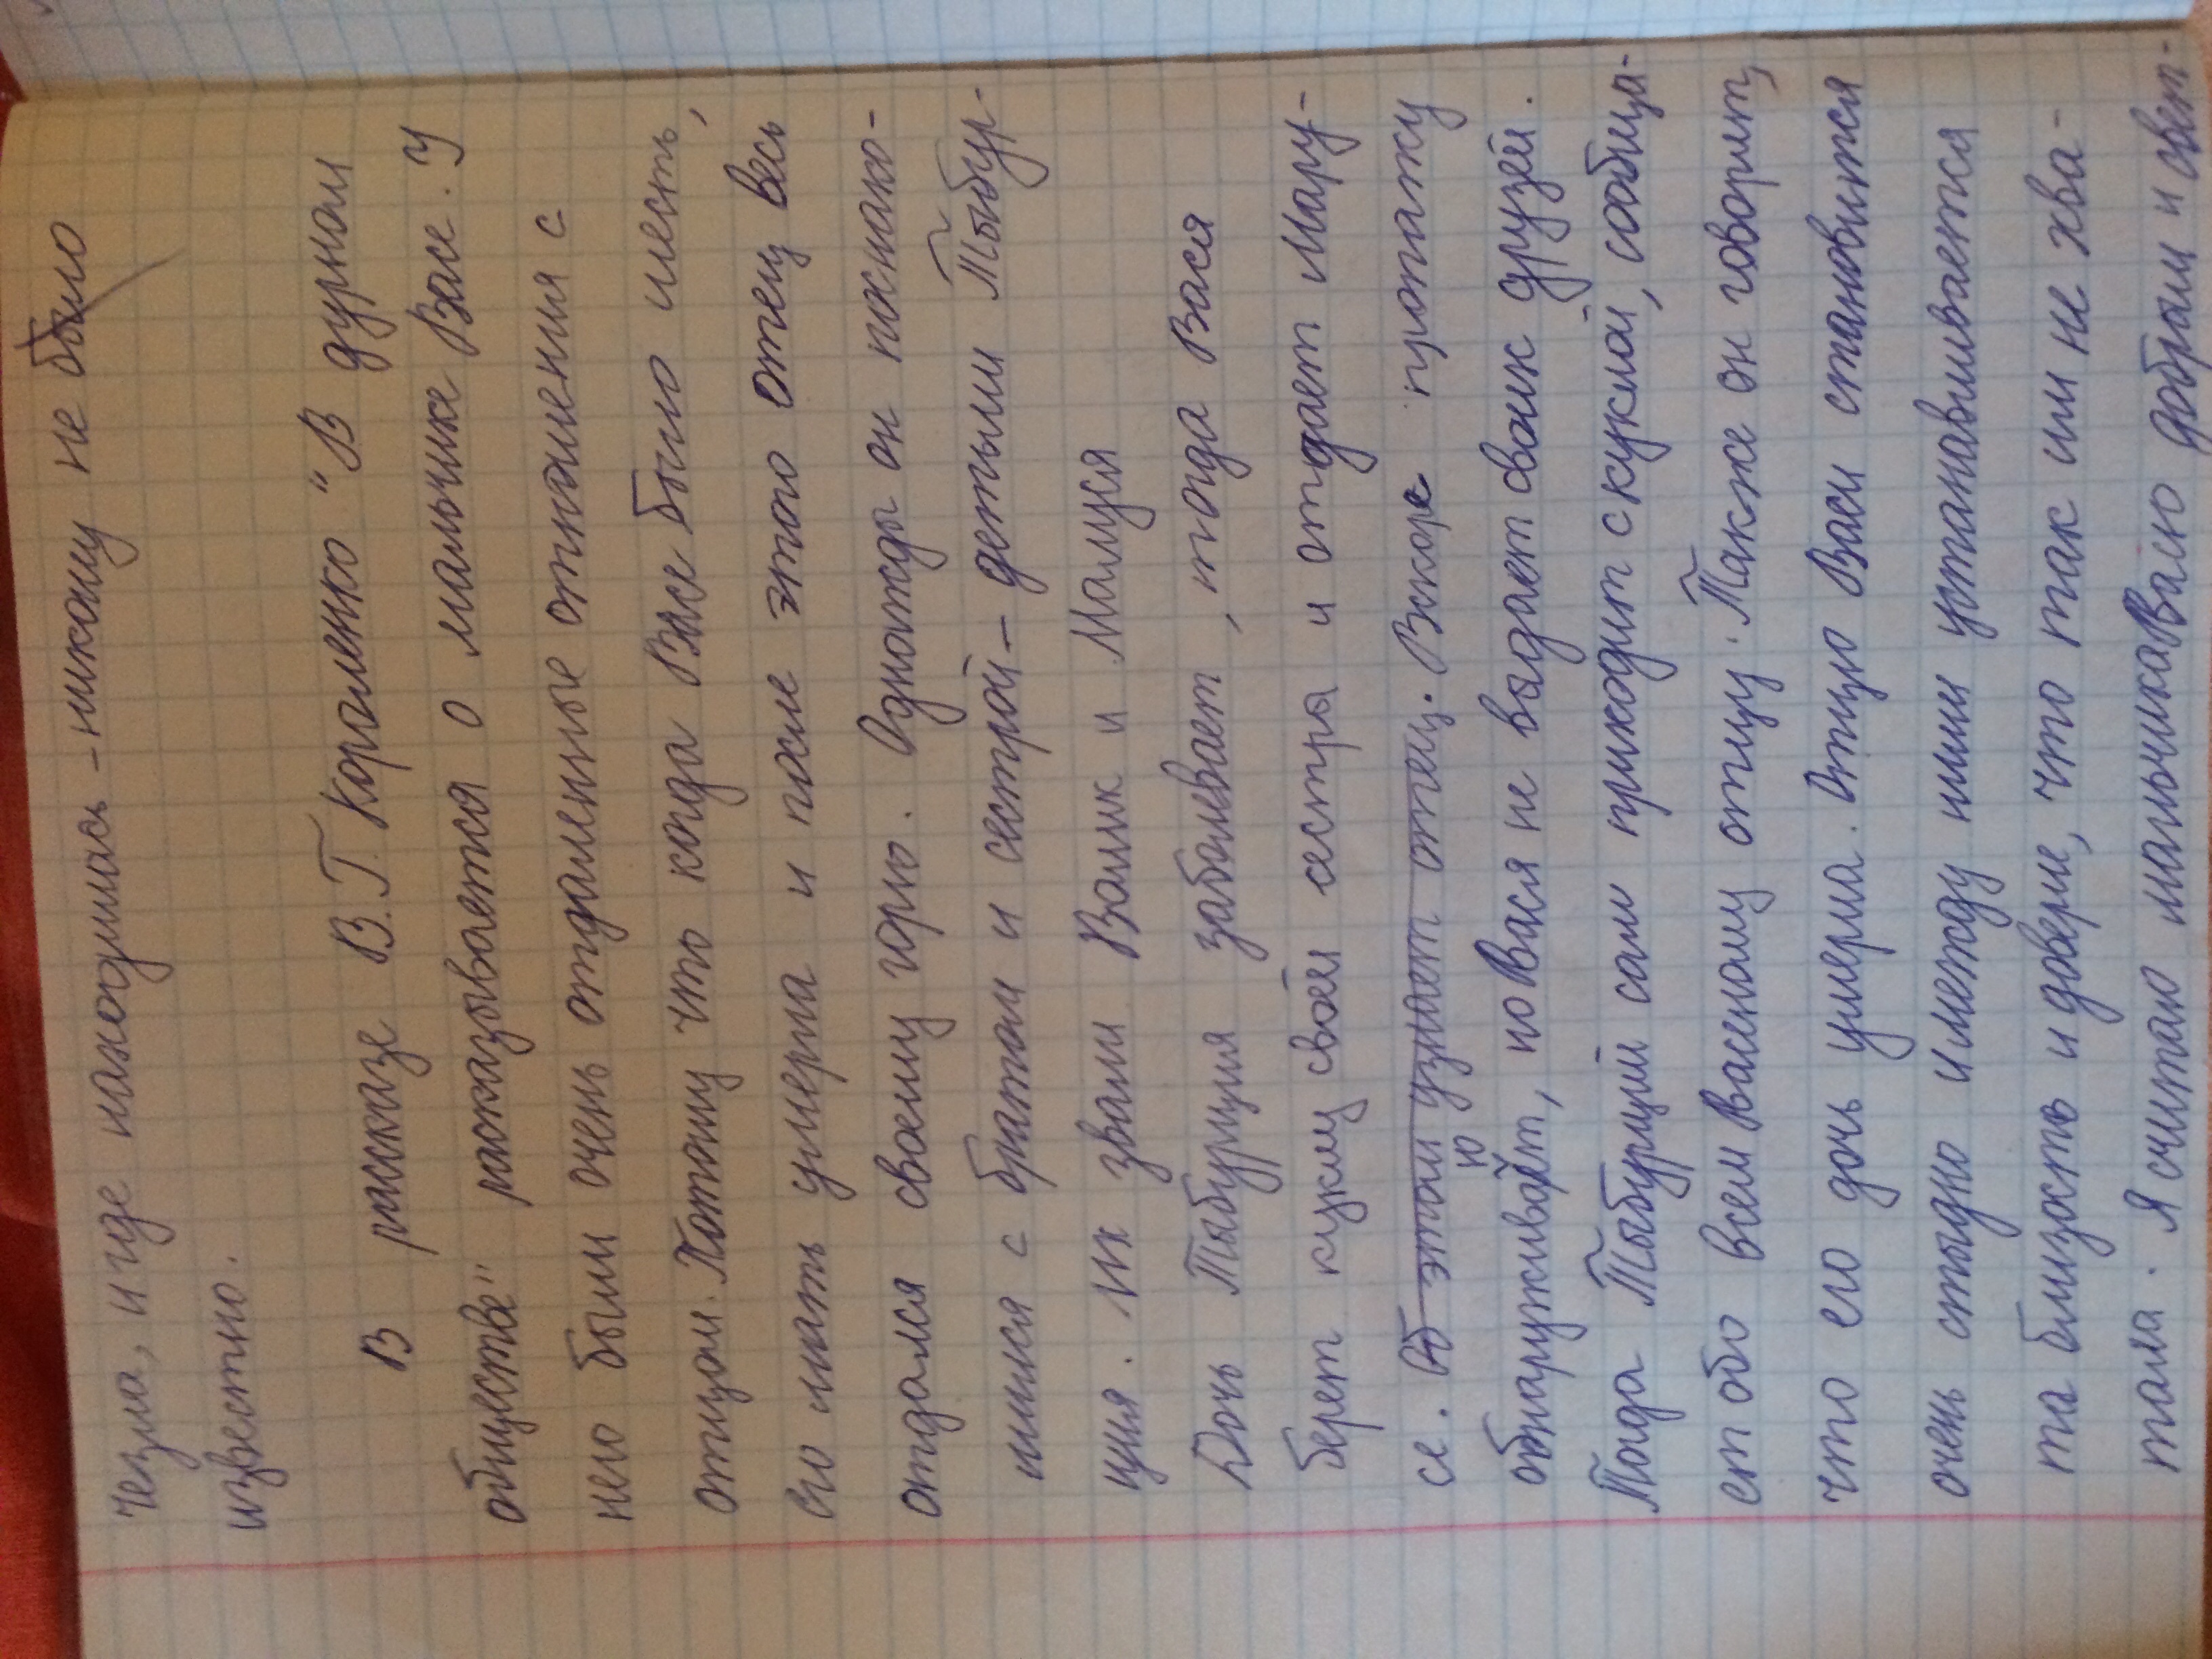 чезла, и где находилась – никому не было
известно.
В рассказе В. Г. Короленко "В дурном
обществе" рассказывается о мальчике Васе. У
него были очень отдаленные отношения с
отцом. Потому что когда Васе было шесть,
его мать умерла и после этого отец весь
отдался своему горю. Однажды он познако-
мился с братом и сестрой – детьми Тыбур-
ция. Их звали Валик и Малуся
Дочь Тыбурция заболевает, тогда Вася
берет куклу своей сестры и отдает Мару-
се. Об этом узнает отец. Вскоре пропажу
обнаруживают, но Вася не выдает своих друзей.
Тогда Тыбурций сам приходит с куклой, сообща-
ет обо всем Васеному отцу. Также он говорит,
что его дочь умерла. Отцу Васи становится
очень стыдно и между ними устанавливается
та близость и доверие, что так им не хва-
тала. Я считаю мальчика Васю добрым и свет-